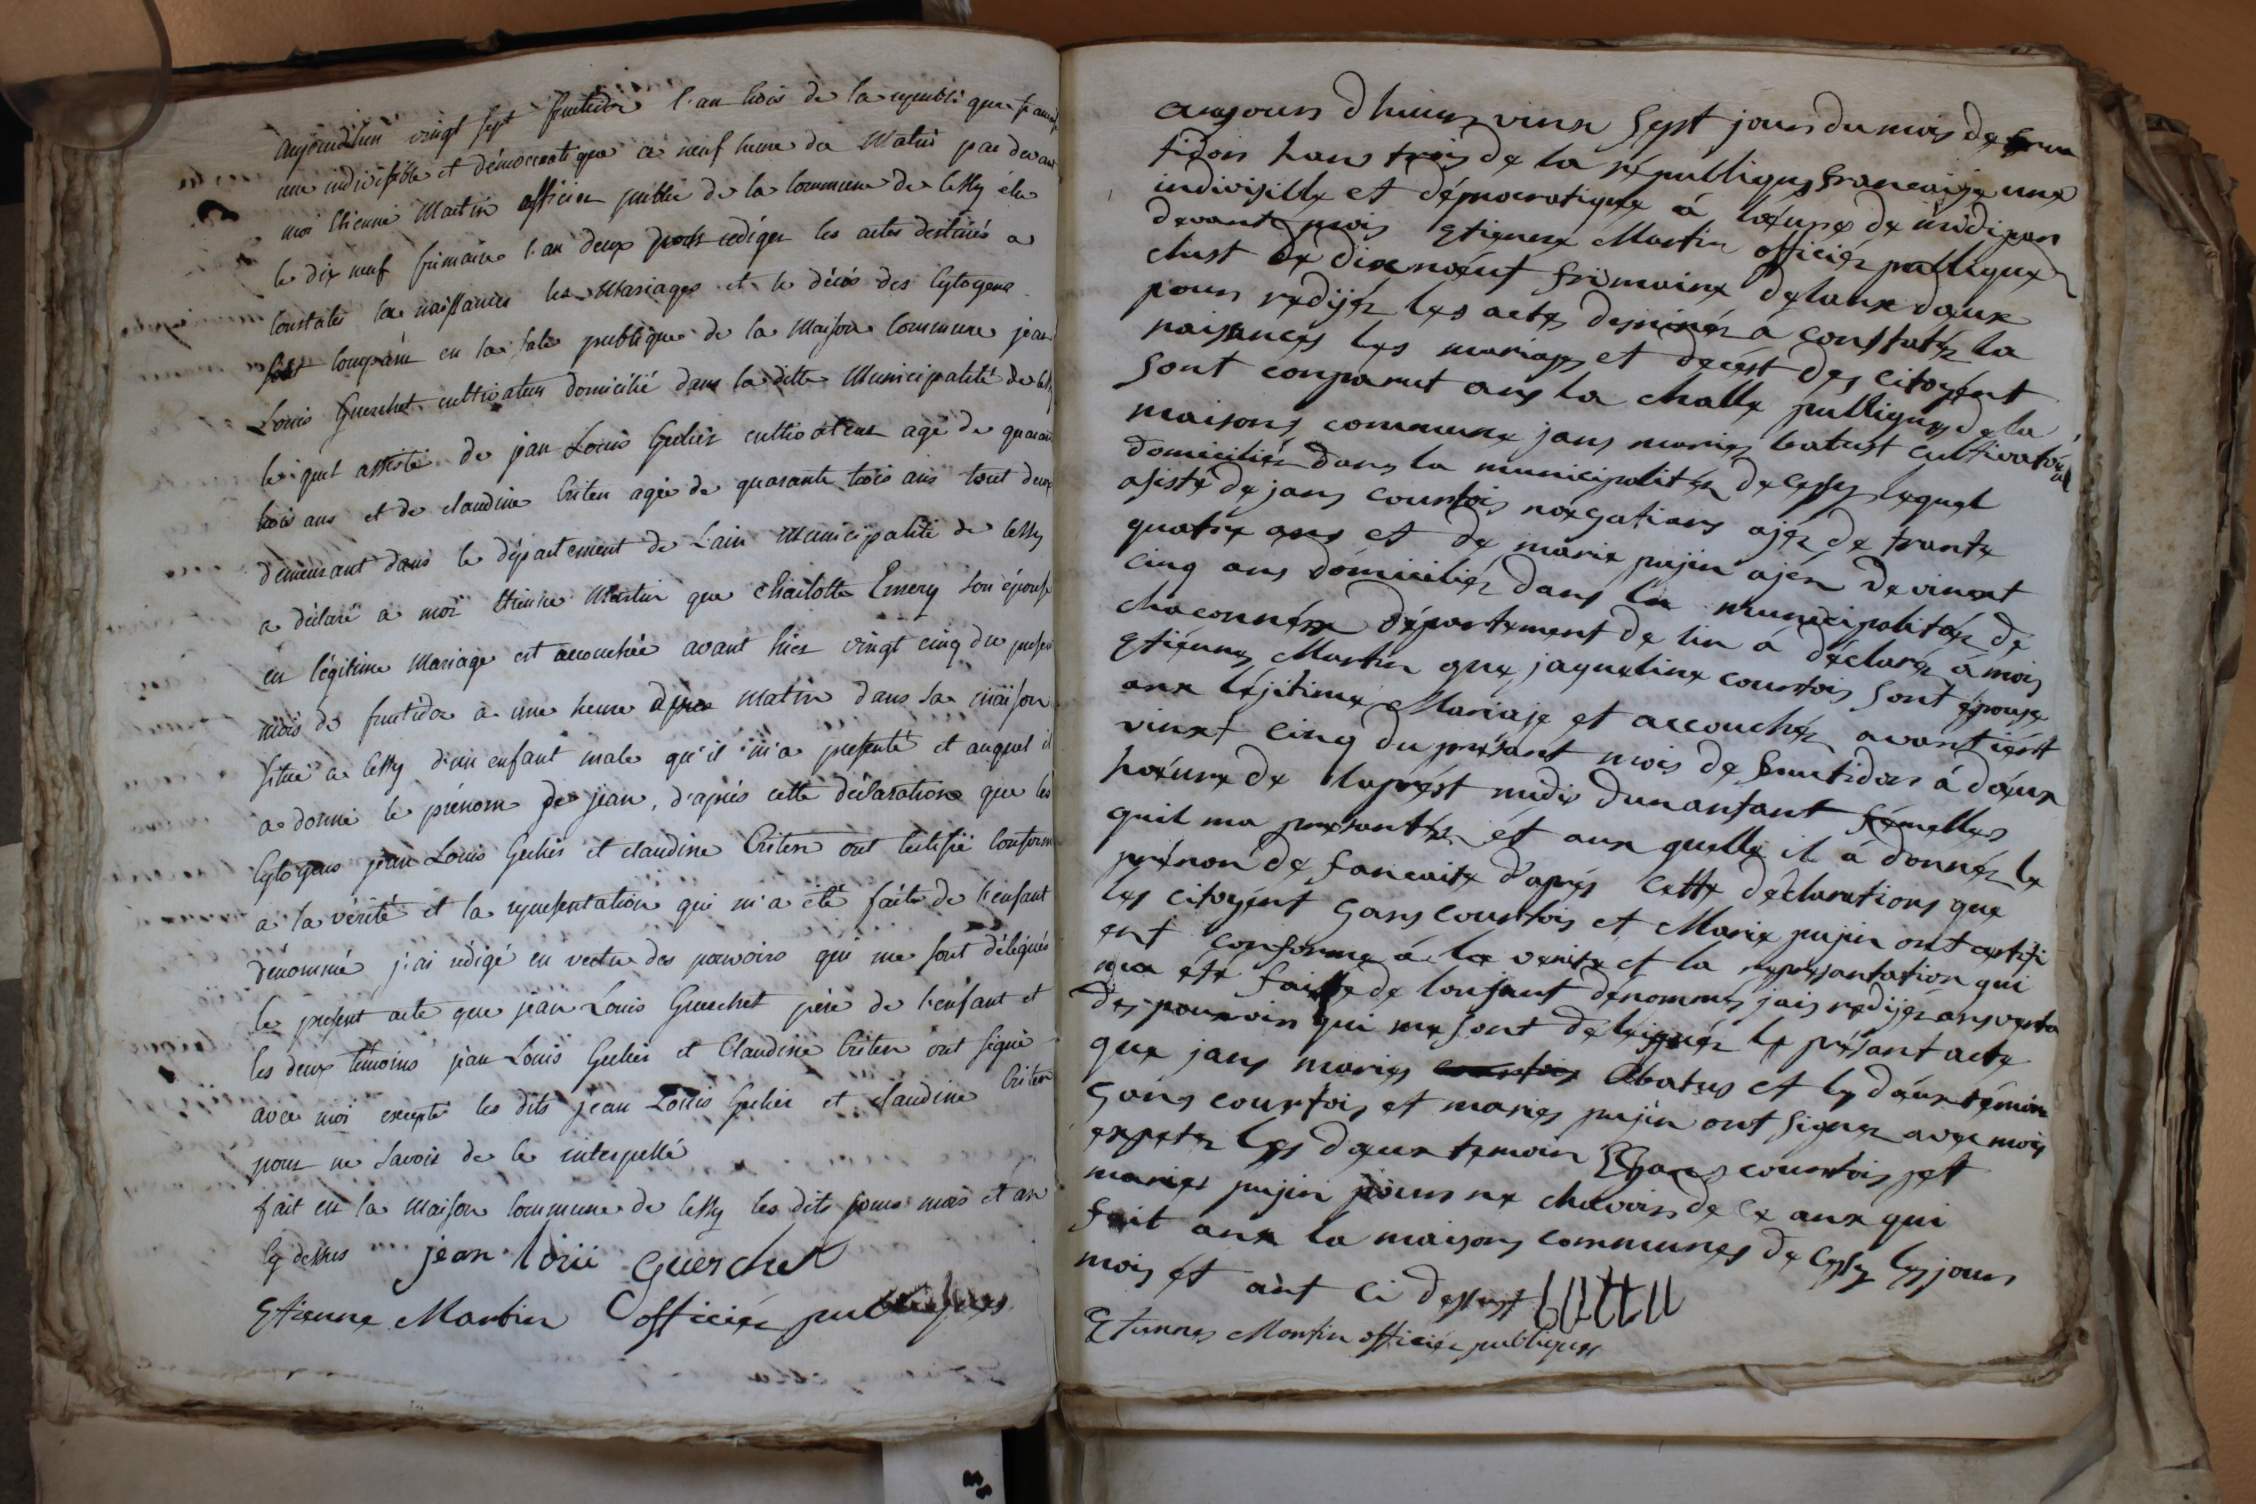 aujourdhui vingt sept fructidor l'an trois de la republique francaise
une indivisible et démocratique a neuf heure du Matin par devant
moi Etienne Martin officier public de la Commune de Cessy élu
le dix neuf frimaire l'an deux pour rediger les actes destinés a
Constater la naissances les Mariages et le décès des Cytoyens
est comparu en la sale publique de la Maison Commune jean
Louis Guerchet cultivateur domicilié dans la ditte Municipalité de Cessy
le quel assisté de jean Louis cultivateur agé de quarante
trois ans et de claudine Criten agée de quarante trois ans tout deux
demeurant dans le département de Lain Municipalité de Cessy
a déclaré a moi Etienne Martin que Charlotte Emery son épouse
en légitime Mariage est accouchée avant hier vingt cinq du present
mois de fructidor a une heure matin dans sa maison
située a Cessy d'un enfant male qu'il m'a presenté et auquel il
a donné le prénom de jean, d'après cette déclaration que les
Cytoyens jean Louis et claudine Criten ont certifié conforme
a la vérité et la representation qui m'a été faite de l'enfant
dénommé j'ai rédigé en vertu des pouvoirs qui me sont délégués
le present acte que jean Louis Guerchet père de l'enfant et
les deux temoins jean Louis et Claudine Criten ont signé
avec moi excepté les dits jean Louis et claudine Criten
pour ne savoir de ce interpellé
fait en la Maison Commune de Cessy les dits jours mois et an
cy dessus jean loui Guerchet
Etienne Martin officiér
aujours dhuies vinx sept jours du mois de fruc
tidors lans trois de la républiques francaise une
indivisille et démocratique á lœure de midi par
devant mois Etienne Martin officiér pullique
elust le dixnoeuf frimaire delanx daux
pour redijér les acte destinér a constatér la
naisances les mariages et decést des citoyent
sont conparut ans la challe pulliques de la
maisons commune jans maries batust cultivatéur
domiciliér dans la municipalitér de Cessy lequel
asisté de jans courtois noegatians ajér de trante
quatre ans et de marie pujin ajér de vinxt
cinq ans domiciliér dans la municipalitér de
chaconnéx département de lin á déclarér á mois
Etiénne Martin que jaqueline courtois sont épouse
anx léjitime Mariaje et accouchér avantiést
vinxt cinq du présant mois de fructidors á dáux
hoéure de laprést midis dunanfant fémelles
quil ma présantér ét aux quelle il á donnér le
prénon de fancaite d'aprés cette déclarations que
les citoyént Gans courtois et Marie pujin ont certifi
ent conforme á la verite et la représantation qui
ma été faitte de lonfant denommés jais redijér ans vertu
des pouxvoir qui me sont deleiguér le présant acte
que jans maries Abatus et ly daux témoin
Gans courtois et maries pujin ont signer avec mois
expeter lys daux temoin Gans courtois jet
maries pujin pour ne chavoir de ce anx qui
fait anx la maisons communes de Cessy lys jours
mois ét ànt ci dessust
Etiennes Martin officiér publiques